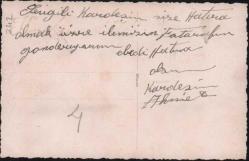 Sevgili Kardeşim size Hatıra
olmak üzere ilemizin Fatorafın
gönderiyorum ebedi Hatıra
olsun
Kardeşim
Ahmet
4